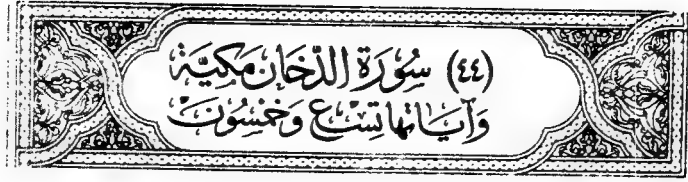 (٤٤) سُورَة الدّخَان مَكيَّة
وَآيَاتها تِسْع وَخَمْسُونْ